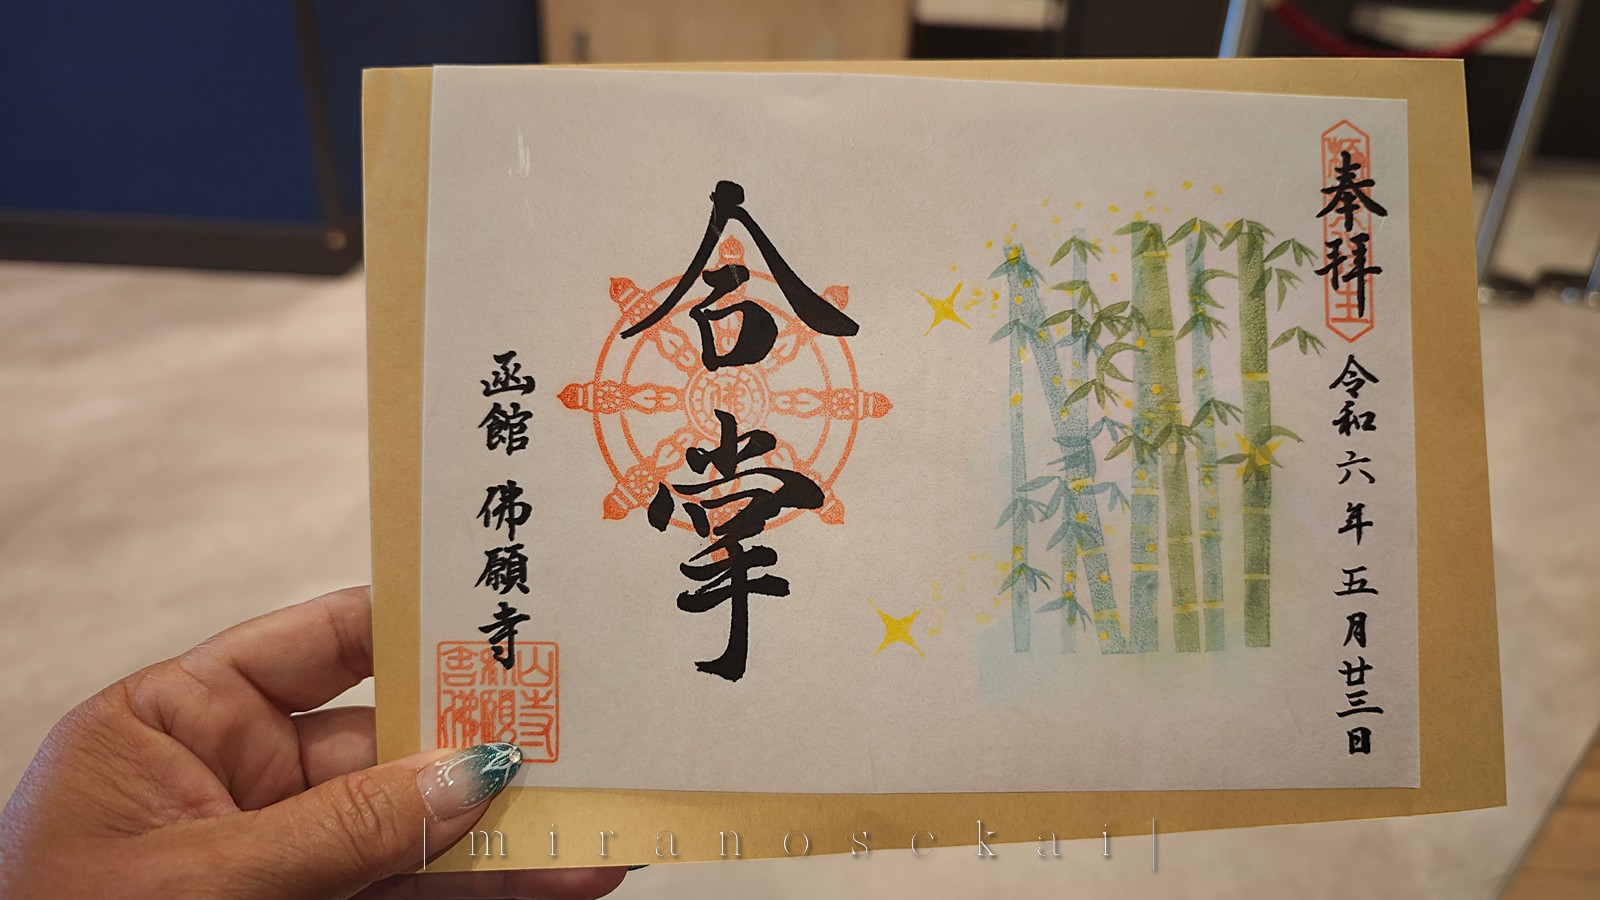 奉拝
令和六年五月廿三日
合掌
函館 佛願寺
|miranosckai|